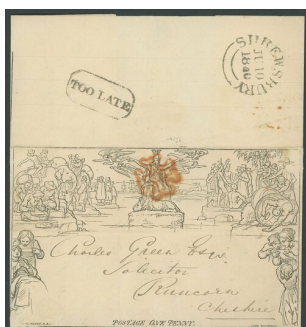 TOO LATE
SHREWSBURY
JU 10
1840
Charles Green Esqr.
Solicitor
Runcorn
Cheshire
POSTAGE ONE PENNY.